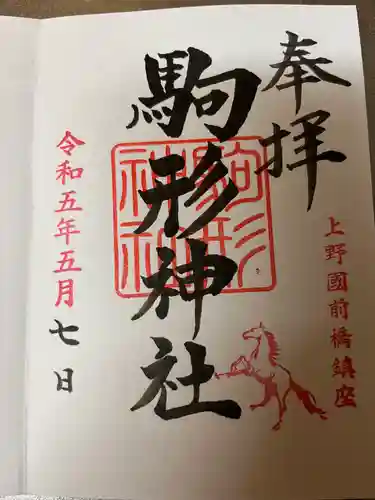 奉拝
上野國前橋鎮座
駒形神社
駒形神社
令和五年五月七日